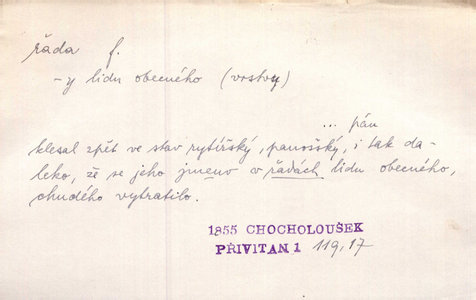 řada f.
-y lidu obecného (vrstvy)
... pán
klesal zpět ve stav rytířský, panošský, i tak da-
leko, že se jeho jmeno v řadách lidu obecného,
chudého vytratilo.
1855 CHOCHOLOUŠEK
PŘIVITAN 1 119,17